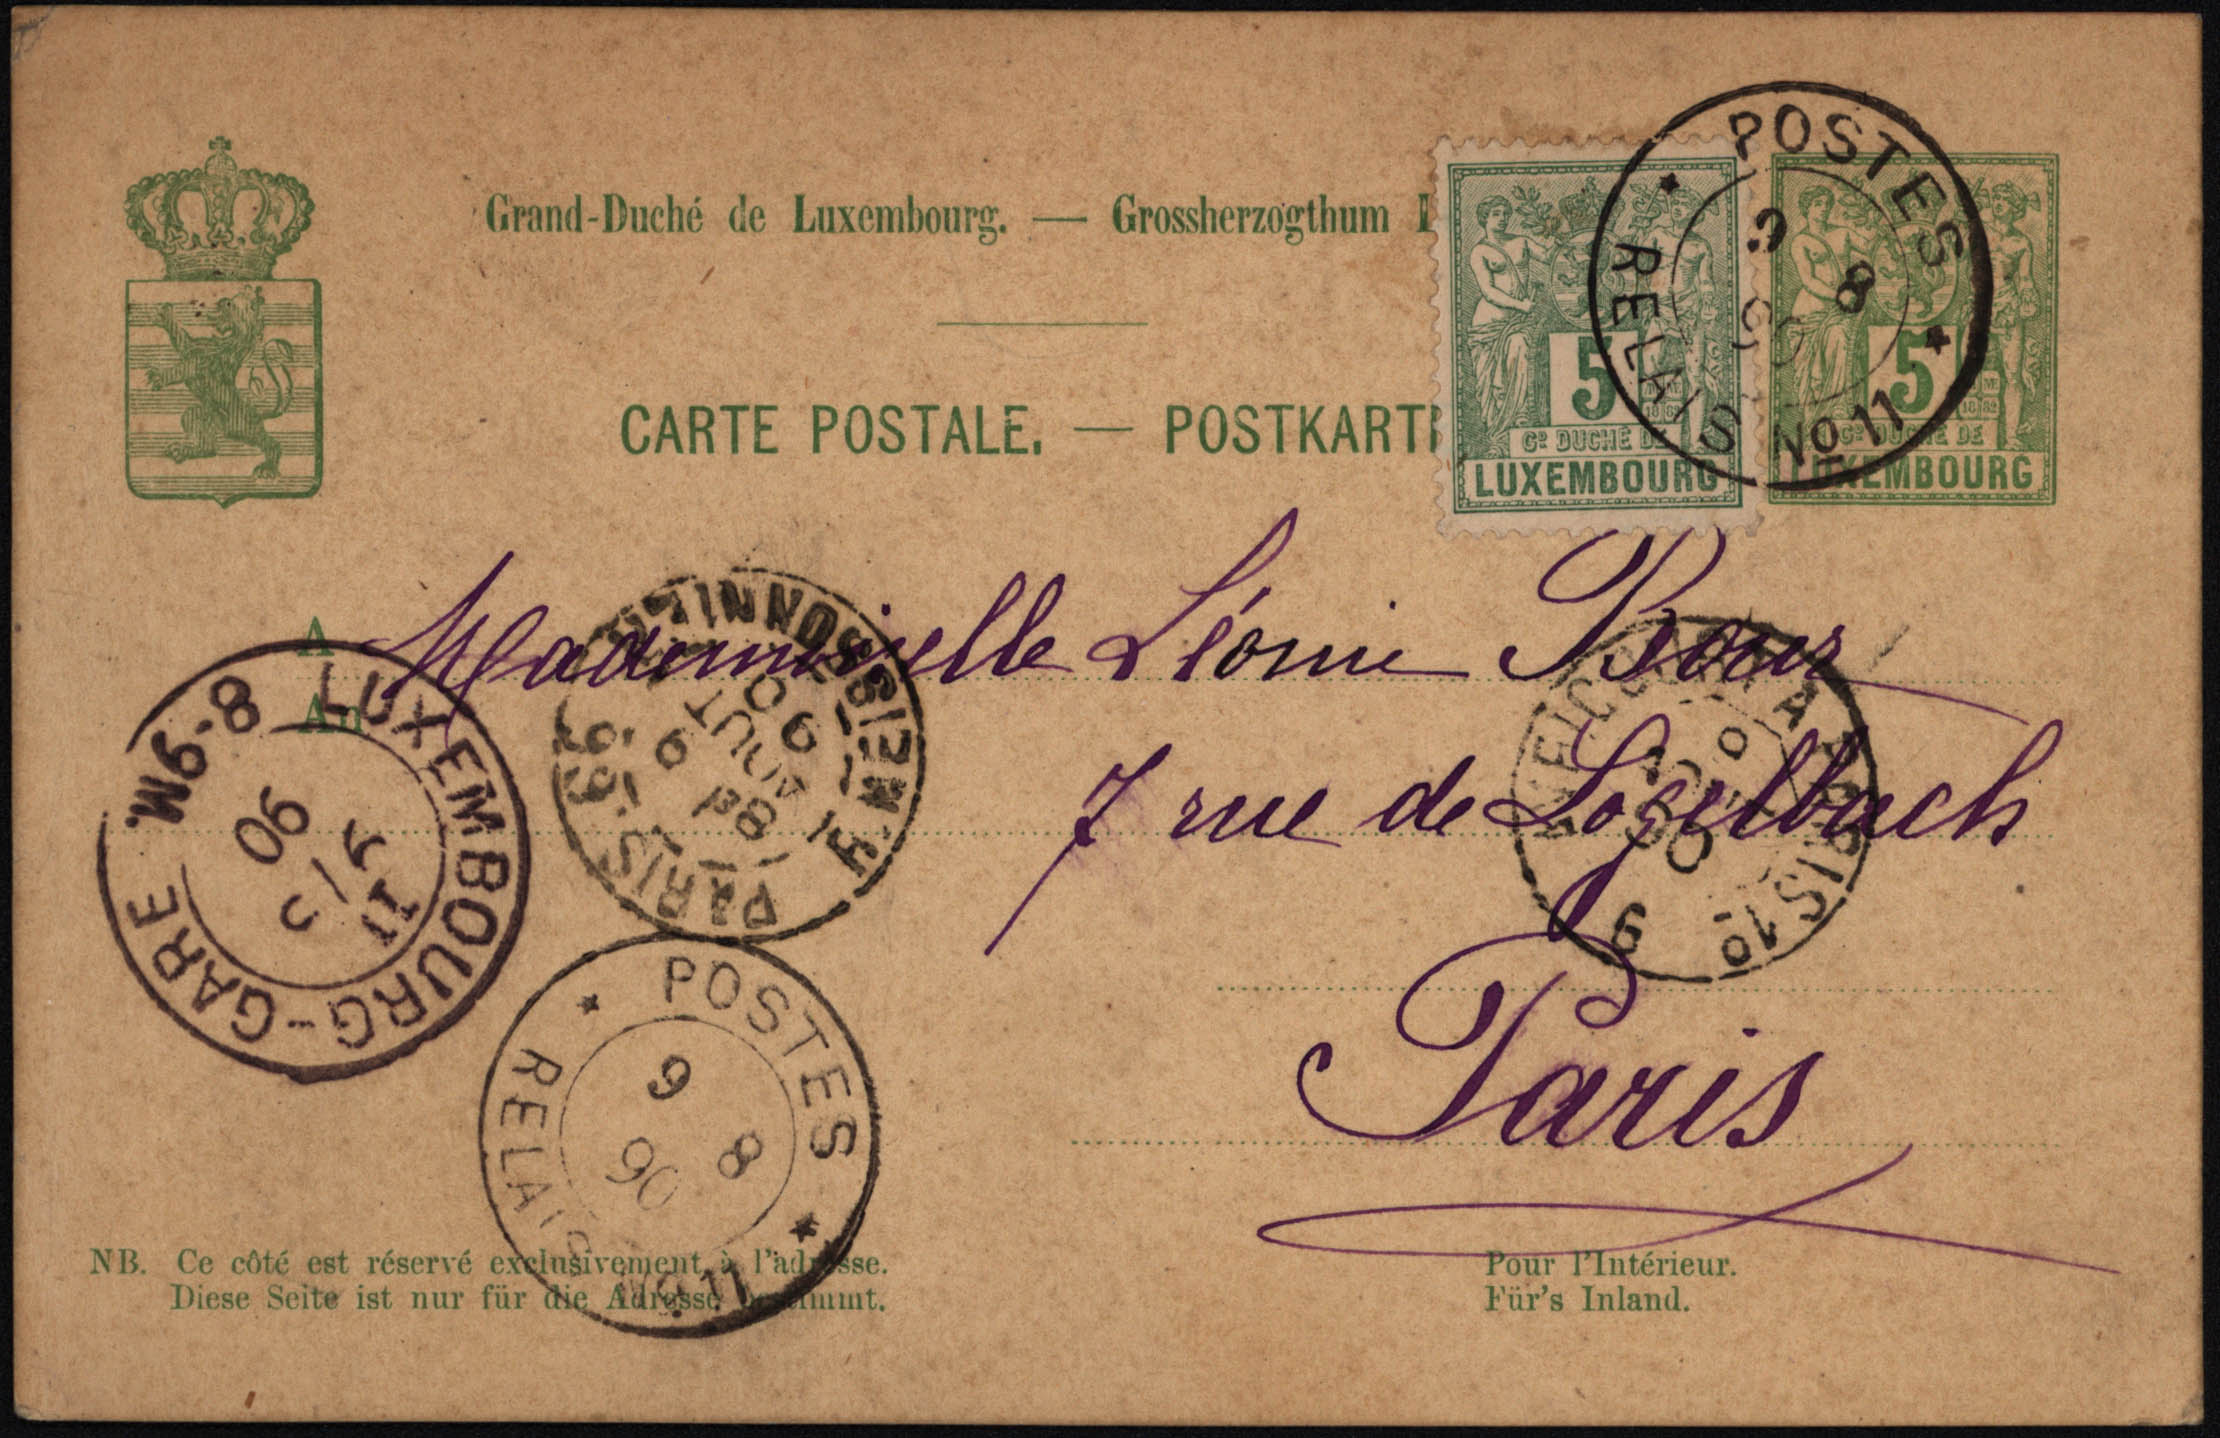 Grand-Duché de Luxembourg. — Grossherzogthum
CARTE POSTALE. — POSTKARTE
5
Gᴰ DUCHÉ DE
LUXEMBOURG
5
Gᴰ DUCHÉ DE
LUXEMBOURG
POSTES
RELAIS No 11
9 8 90
A
An
Mademoiselle Léonie Bour
7 rue de Logelbach
Paris
LUXEMBOURG-GARE
8-9M.
90
PARIS
9 AOUT 90
PARIS
90
POSTES
RELAIS No 11
9 8 90
NB. Ce côté est réservé exclusivement à l'adresse.
Diese Seite ist nur für die Adresse bestimmt.
Pour l'Intérieur.
Für's Inland.